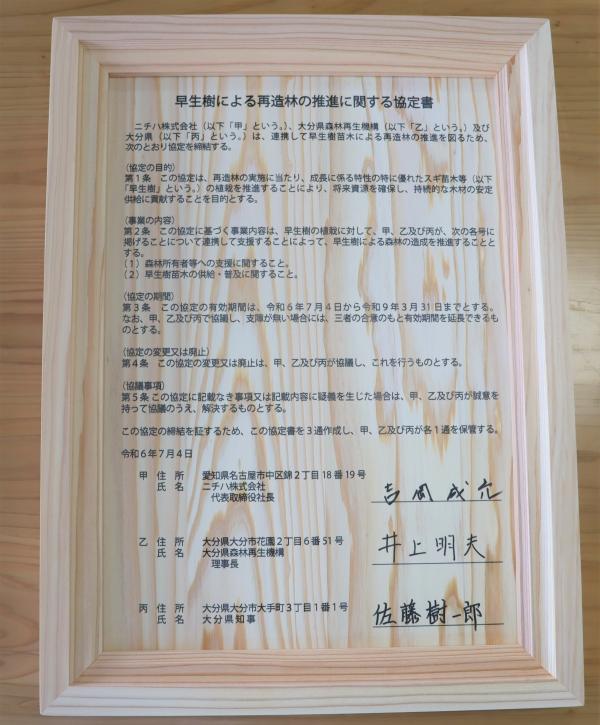 早生樹による再造林の推進に関する協定書
ニチハ株式会社（以下「甲」という。）、大分県森林再生機構（以下「乙」という。）及び
大分県（以下「丙」という。）は、連携して早生樹苗木による再造林の推進を図るため、
次のとおり協定を締結する。
（協定の目的）
第１条　この協定は、再造林の実施に当たり、成長に係る特性の特に優れたスギ苗木等（以下
「早生樹」という。）の植栽を推進することにより、将来資源を確保し、持続的な木材の安定
供給に貢献することを目的とする。
（事業の内容）
第２条　この協定に基づく事業内容は、早生樹の植栽に対して、甲、乙及び丙が、次の各号に
掲げることについて連携して支援することによって、早生樹による森林の造成を推進することと
する。
（１）森林所有者等への支援に関すること。
（２）早生樹苗木の供給・普及に関すること。
（協定の期間）
第３条　この協定の有効期間は、令和６年７月４日から令和９年３月３１日までとする。
なお、甲、乙及び丙で協議し、支障が無い場合には、三者の合意のもと有効期間を延長できるも
のとする。
（協定の変更又は廃止）
第４条　この協定の変更又は廃止は、甲、乙及び丙が協議し、これを行うものとする。
（協議事項）
第５条 この協定に記載なき事項又は記載内容に疑義を生じた場合は、甲、乙及び丙が誠意を
持って協議のうえ、解決するものとする。
この協定の締結を証するため、この協定書を３通作成し、甲、乙及び丙が各１通を保管する。
令和６年７月４日
甲　住　所　愛知県名古屋市中区錦２丁目１８番１９号
氏　名　ニチハ株式会社
代表取締役社長　吉岡成充
乙　住　所　大分県大分市花園２丁目６番５１号
氏　名　大分県森林再生機構
理事長　井上明夫
丙　住　所　大分県大分市大手町３丁目１番１号
氏　名　大分県知事　佐藤樹一郎